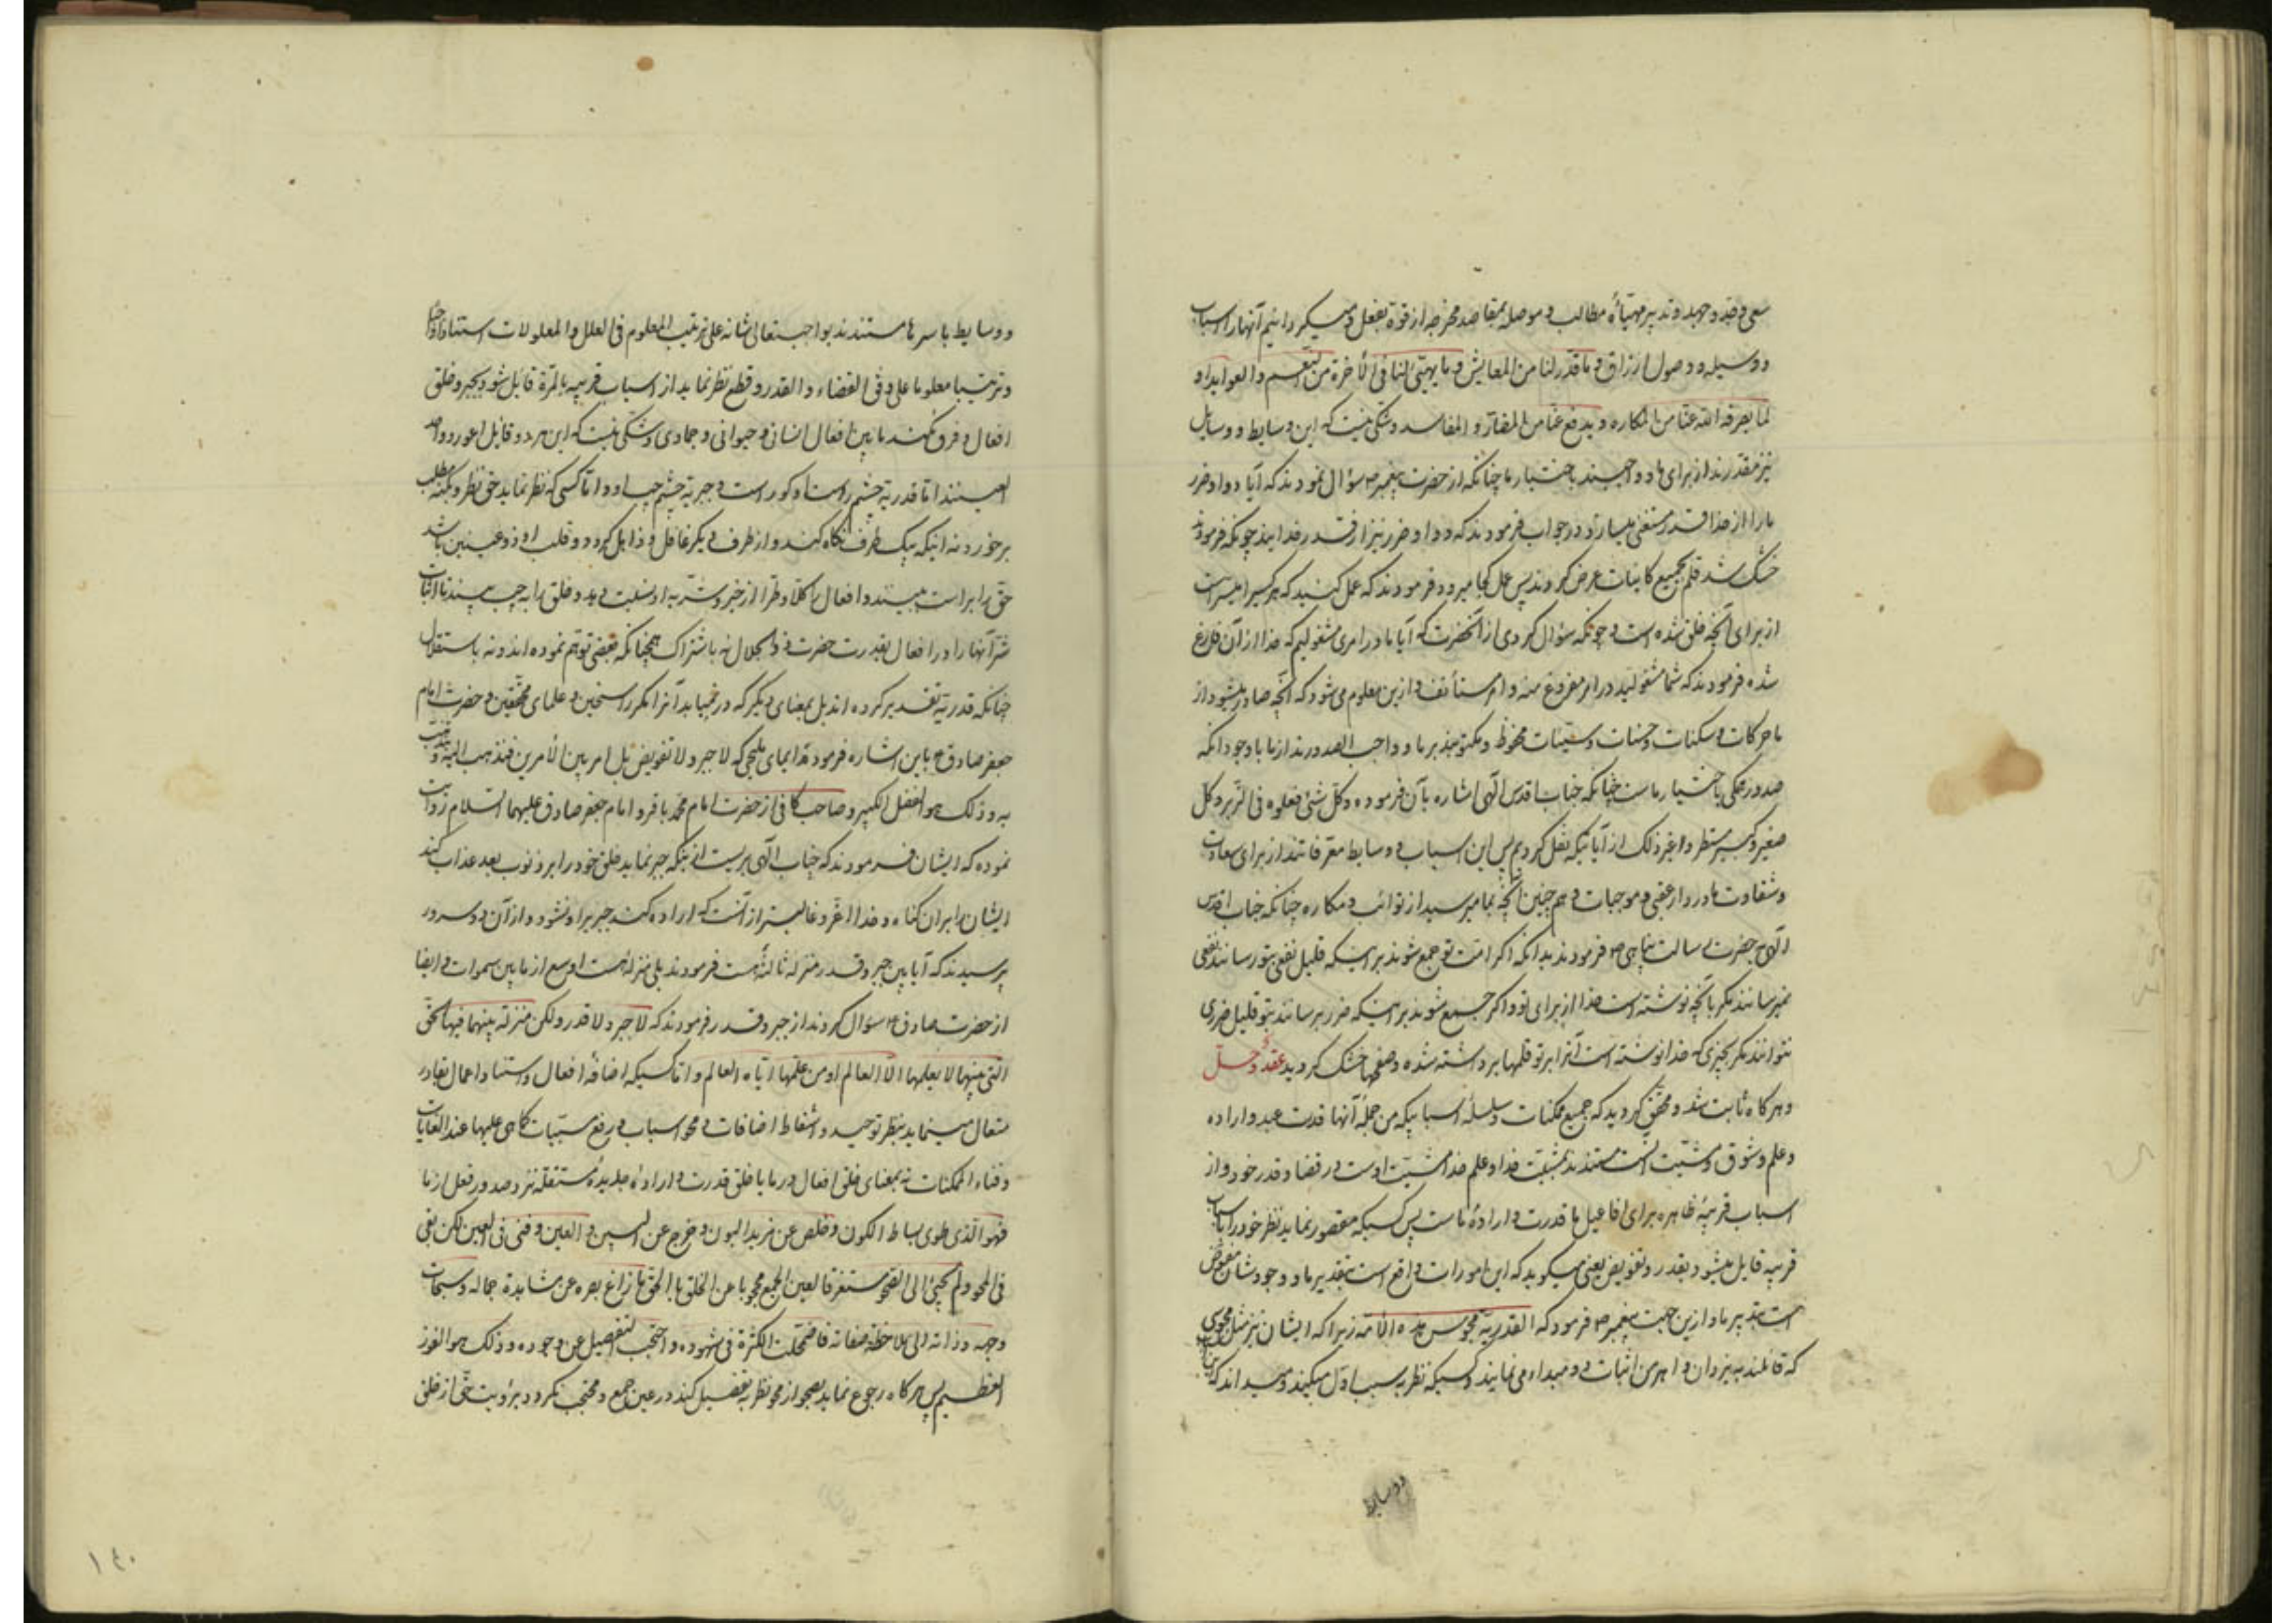 سعی و جد و جهد و تدبیر مهیّأهٔ مطالب و موصله بمقاصد مخرجه از قوة بفعل و میگردانیم آنها را اسباب
و وسیله و وصول ارزاق و ما قدّر لنا من المعایش و ما یهیّئ لنا فی الآخرة من النعیم و العواید او
لما یصرفه الله عنّا من المکاره و یدفع عنّا من المضارّ و المفاسد و شکی نیست که این وسایط و وسایل
نیز مقدّرند از برای ما و واجبند باختیار ما چنانکه از حضرت پیغمبر ص سؤال نمودند که آیا دوا و ضرر
ما را از خدا قدر مستغنی میسازد در جواب فرمودند که دوا و ضرر نیز از قدر خدایند چونکه فرمودند
خشک شد قلم بجمیع کاینات عرض کردند پس عمل کجا میرود فرمودند که عمل کنید که هر کسیرا میسر است
از برای آنچه خلق شده است و چونکه سؤال کردی از آنحضرت که آیا ما در امری مشغولیم که خدا از آن فارغ
شده فرمودند که شما مشغولید در امر مفروغ منه و امر مستأنف و ازین معلوم می‌شود که آنچه صادر میشود از
ما حرکات و سکنات و حسنات و سیّئات محفوظ و مکتوبند بر ما و واجب الصدورند از ما با وجود آنکه
صدور همکی باختیار ماست چنانکه جناب اقدس الهی اشاره بآن فرموده و کل شئ فعلوه فی الزبر و کل
صغیر و کبیر مستطر و اغیر ذلک از آیاتیکه نقل کردیم پس این اسباب و وسایط معرّفاتند از برای سعادت
و شقاوت ما در دار عقبی و موجبات و هم چنین آنچه بما میرسد از نوائب و مکاره چنانکه جناب اقدس
الهی بحضرت رسالت پناهی ص فرمودند بدانکه اگر امّت تو جمع شوند بر اینکه قلیل نفعی بتو رسانند نفعی
نمیرسانند مکر بآنچه نوشته است خدا از برای تو و اکر جمیع شوند بر اینکه ضرر برسانند بتو قلیل ضرری
نتوانند مکر بچیزی که خدا نوشته است آنرا بر تو قلمها برداشته شده و صفحها خشک کردید عقد و حلّ
و هر کاه ثابت شد و محقّق کردید که جمیع ممکنات و سلسلهٔ اسبابیکه من جملهٔ آنها قدرت عبد و اراده
و علم و شوق و مشیّت است مستندند بمشیّت خدا و علم خدا مشیّت اوست در قضا و قدر خود و از
اسباب قریبهٔ ظاهره برای افاعیل ما قدرت و ارادهٔ ماست پس کسیکه مقصور نماید نظر خود را باسباب
قریبه قایل میشود بقدر و تفویض یعنی میکوید که این امورات واقع است بتقدیر ما و وجودشان مفوّض
است بتدبیر ما و ازین جهت پیغمبر ص فرمود که القدریّة مجوس هذه الأمّة زیرا که ایشان نیز مثل مجوس
که قائلند به یزدان و اهرمن اثبات دو مبداء می‌نمایند و کسیکه نظر به سبب اوّل میکند و میداند که این اسباب
و وسایط
و وسایط باسرها مستندند بواجب تعالی شانه علی ترتیب المعلوم فی العلل و المعلولات استنادا واجبا
و ترتیبا معلوما علی وفق القضاء و القدر و قطع نظر نماید از اسباب قریبه بالمرّة قایل شود بجبر و خلق
افعال و فرق نکند ما بین افعال انسانی و حیوانی و جمادی و شکی نیست که این هر دو قایل اعور و واحد
العینند اما قدریّة چشم راستاو کور است و جبریّة چشم چپ او و امّا کسی که نظر نماید حق نظر و بکنه مطلب
برخورد نه اینکه بیک طرف نکاه کند و از طرف دیکر غافل و ذاهل کردد و قلب او ذو عینین باشد
حق را براست میبیند و افعال را کلّا و طرّا از خیر و شر به او نسبت دهد و خلق را به چپ میبیند تا اثبات
شر آنها را در افعال بقدرت حضرت ذو الجلال نه باشتراک همچنانکه بعضی توهّم نموده‌اند و نه باستقلال
چنانکه قدریّه تقدیر کرده‌اند بل بمعنای دیکر که درمییابد آنرا مکر راسخین و علمای محقّقین و حضرت امام
جعفر صادق ع باین اشاره فرموده ایمای ملیحی که لا جبر و لا تفویض بل امر بین الأمرین فنذهب الیه و نتمذهب
به و ذلک هو الفضل الکبیر و صاحب کافی از حضرت امام محمد باقر و امام جعفر صادق علیهما السلام روایت
نموده که ایشان فرمودند که جناب الهی بریست از اینکه جبر نماید خلق خود را بر ذنوب بعد عذاب کند
ایشان را بر ان کناه و خدا اعزّ و غالبتر از آنست که اراده کند جبر بر او نشود و از آن دو سرور
پرسیدند که آیا بین جبر و قدر منزله ثالثه هست فرمودند بلی منزلهٔ هست اوسع از ما بین سموات و ایضا
از حضرت صادق ع سؤال کردند از جبر و قدر فرمودند که لا جبر و لا قدر ولکن منزلة بینهما فیها الحقّ
التی بینهما لا یعلمها الّا العالم او من علّمها ایّاه العالم و امّا کسیکه اضافهٔ افعال و استناد اعمال بقادر
متعال مینماید بنظر توحید و اسقاط اضافات و محو اسباب و رفع مسبّبات کما هی علیها عند الغایات
و فناء الممکنات نه بمعنای خلق افعال در ما یا خلق قدرت و ارادهٔ جدیدهٔ مستقله نزد صدور فعل از ما
فهو الذی طوی بساط الکون و خلص عن مزید البون و خرج عن السبین و العین و فنی فی العین لکن بقی
فی المحو و لم یجئ الی الصحو مستغرقا لعین الجمع محجوبا عن الخلق بالحق ما زاغ بصره عن مشاهدة جماله و سبحات
وجهه و ذاته الی ملاحظة صفاته فاضمحلت الکثرة فی شهوده و احتجب التفصیل عن وجوده و ذلک هو الفوز
العظیم پس هر کاه رجوع نماید بصحو از محو نظر به تفصیل کند در عین جمع و محتجب نکردد برؤیت حق از خلق
۱۴۰